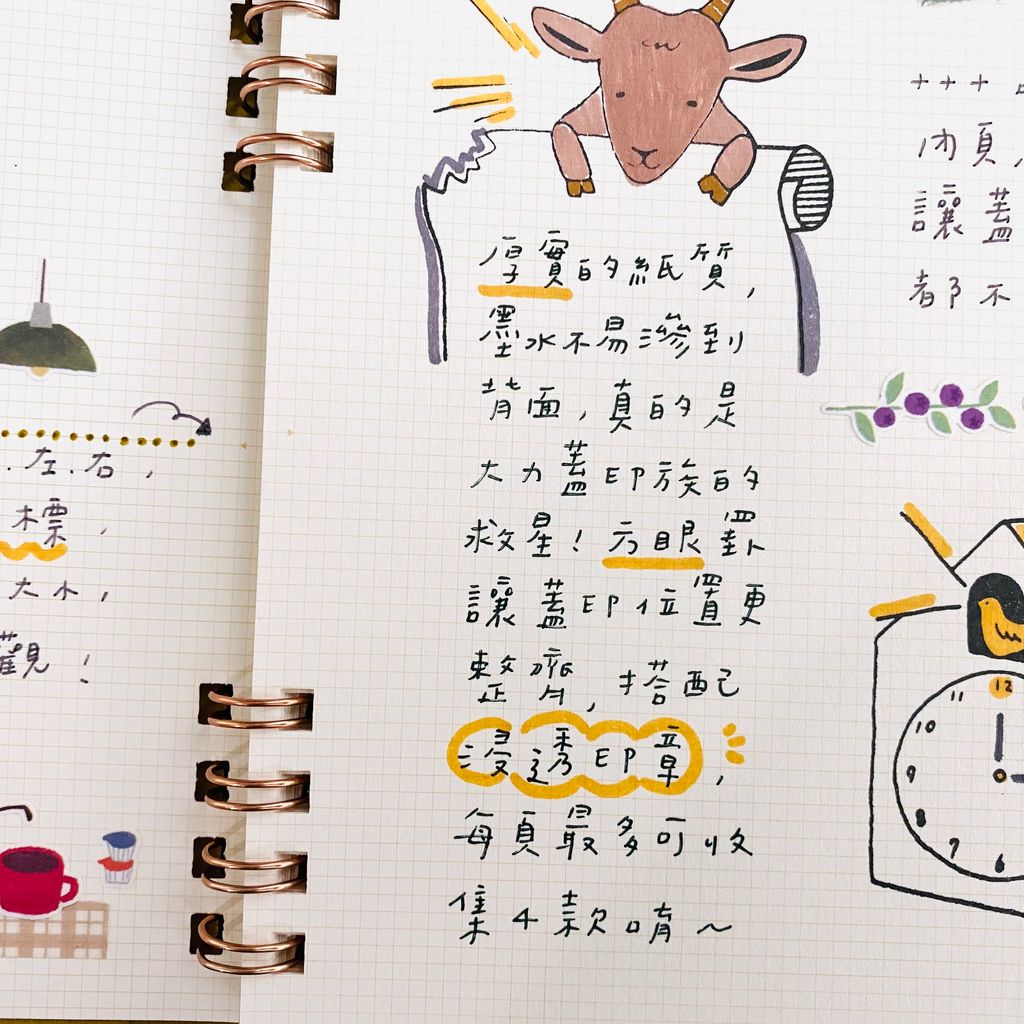 .左.右，
標，
大小，
觀！
厚實的紙質，
墨水不易滲到
背面，真的是
大力蓋印族的
救星！方眼罫
讓蓋印位置更
整齊，搭配
浸透印章，
每頁最多可收
集4款唷～
+++
內頁，
讓蓋
都不
12
11
10
9
8
7
6